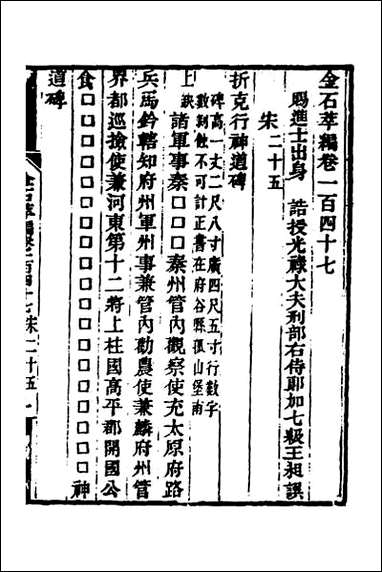 金石萃編卷一百四十七
賜進士出身 誥授光祿大夫刑部右侍郎加七級王昶譔
宋二十五
折克行神道碑
碑高一丈二尺八寸廣四尺五寸行數字
數剝蝕不可計正書在府谷縣孤山堡南
上缺諸軍事秦□□□秦州管內觀察使充太原府路
兵馬鈐轄知府州軍州事兼管內勸農使兼麟府州管
界都巡撿使兼河東第十二將上柱國高平郡開國公
食□□□□□□□□□□□□□□□□□□神
道碑
金石萃編卷一百四十七宋二十五 一